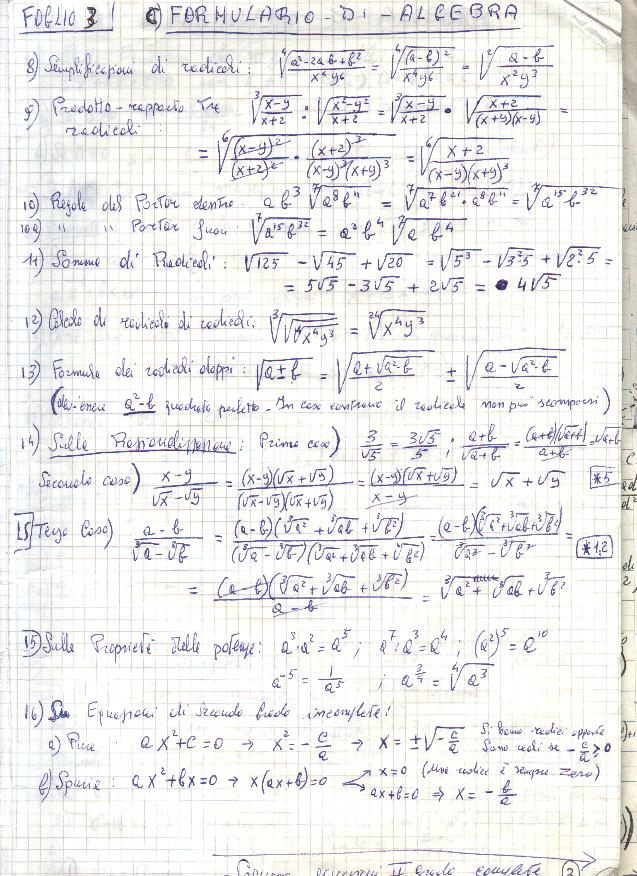 FOGLIO 3 C) FORMULARIO - DI - ALGEBRA
8) Semplificazioni di radicali: ⁴√((a²-2ab+b²)/(x⁴y⁶)) = ⁴√((a-b)²/(x⁴y⁶)) = ²√((a-b)/(x²y³))
9) Prodotto - rapporto tra radicali: ³√((x-y)/(x+2)) : √((x²-y²)/(x+2)) = ³√((x-y)/(x+2)) · √((x+2)/((x+y)(x-y))) =
= ⁶√((x-y)²/(x+2)² · (x+2)³/((x-y)³(x+y)³)) = ⁶√((x+2)/((x-y)(x+y)³))
10) Regola del Portar dentro: ab³ ⁷√(a⁸b¹¹) = ⁷√(a⁷b²¹·a⁸b¹¹) = ⁷√(a¹⁵b³²)
10a) " " Portar fuori: ⁷√(a¹⁵b³²) = a²b⁴ ⁷√(a b⁴)
11) Somma di Radicali: √125 - √45 + √20 = √5³ - √3²5 + √2²·5 =
= 5√5 - 3√5 + 2√5 = 4√5
12) Calcolo di radicali di radicali: ³√√⁴√(x⁴y³) = ²⁴√(x⁴y³)
13) Formula dei radicali doppi: √(a±b) = √((a+√(a²-b))/2) ± √((a-√(a²-b))/2)
(dev'essere a²-b quadrato perfetto - In caso contrario il radicale non può scomporsi)
14) Sulla Razionalizzazione: Primo caso) 3/√5 = 3√5/5 ; (a+b)/√(a+b) = (a+b)√(a+b)/(a+b) = √(a+b)
Secondo caso) (x-y)/(√x-√y) = (x-y)(√x+√y)/((√x-√y)(√x+√y)) = (x-y)(√x+√y)/(x-y) = √x+√y *5
15) Terzo Caso) (a-b)/(³√a-³√b) = (a-b)(³√a²+³√ab+³√b²)/((³√a-³√b)(³√a²+³√ab+³√b²)) = (a-b)(³√a²+³√ab+³√b²)/(³√a³-³√b³) = *1,2
= (a-b)(³√a²+³√ab+³√b²)/(a-b) = ³√a²+³√ab+³√b²
15) Sulle Proprietà delle potenze: a³·a²=a⁵ ; a⁷:a³=a⁴ ; (a²)⁵=a¹⁰
a⁻⁵ = 1/a⁵ ; a^(3/4) = ⁴√a³
16) Equazioni di Secondo Grado incomplete:
a) Pure: ax²+c=0 → x²=-c/a → x=±√(-c/a) Si hanno radici opposte
Sono reali se -c/a ≥ 0
b) Spurie: ax²+bx=0 → x(ax+b)=0 → x=0 (una radice è sempre zero)
→ ax+b=0 ⇒ x=-b/a
equazioni II grado complete 3